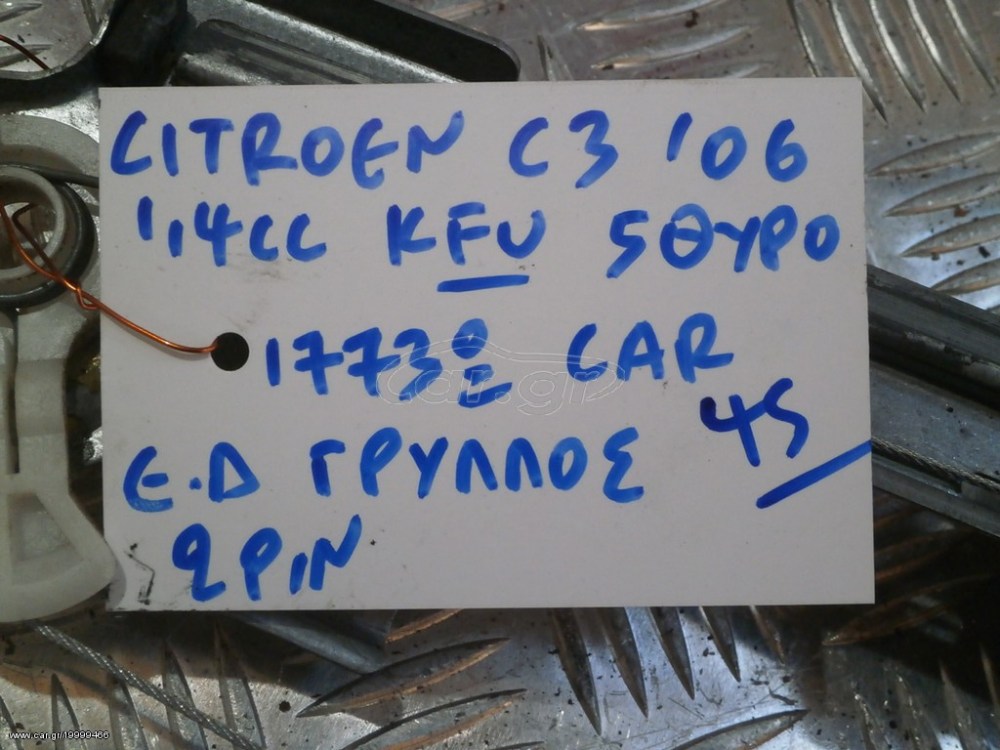 CITROEN C3 '06
1,4CC KFU 5ΘΥΡΟ
1773º CAR
45
Ε.Δ ΓΡΥΛΛΟΣ
2PIN
car.gr
www.car.gr/19999466